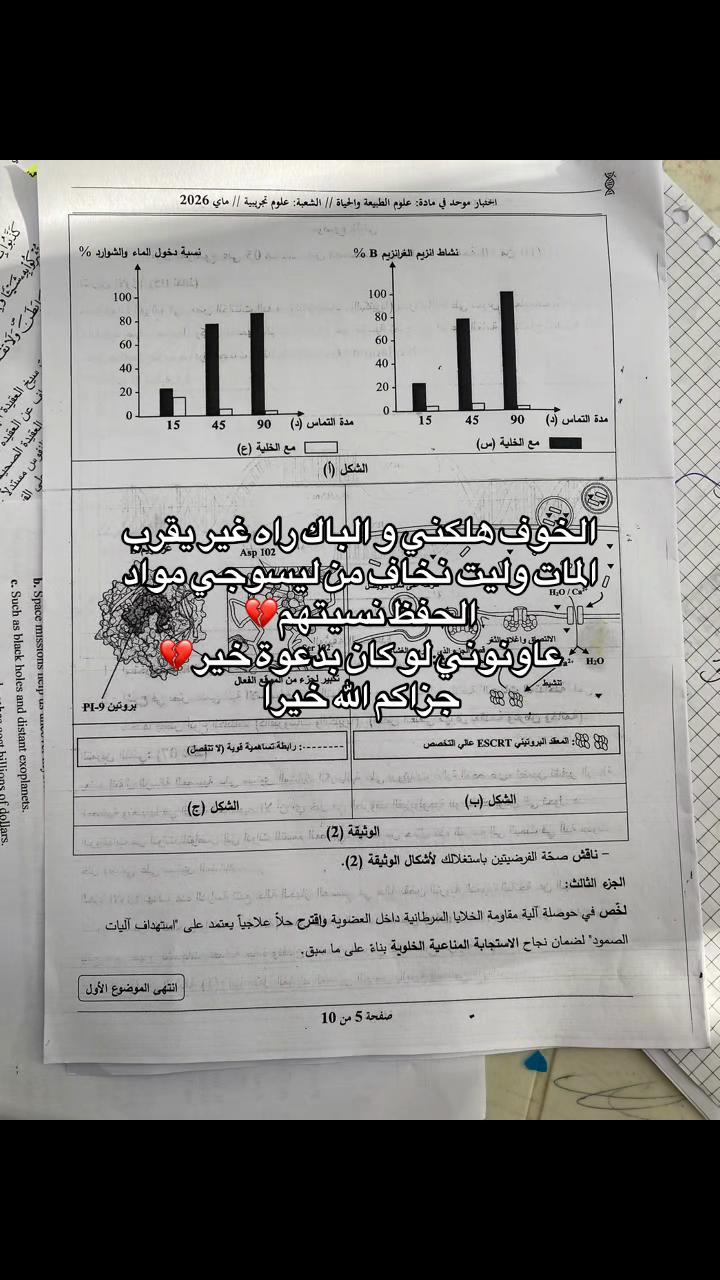 اختبار موحد في مادة: علوم الطبيعة والحياة // الشعبة: علوم تجريبية // ماي 2026
نشاط انزيم الغرانزيم B %
نسبة دخول الماء والشوارد %
100
80
60
40
20
0
15 45 90
مدة التماس (د)
100
80
60
40
20
0
15 45 90
مدة التماس (د)
مع الخلية (س)
مع الخلية (ع)
الشكل (أ)
الخوف هلكني و الباك راه غير يقرب
المات وليت نخاف من ليسوجي مواد
الحفظ نسيتهم💔
عاونوني لو كان بدعوة خير💔
جزاكم الله خيرا
Asp 102
H₂O
تنشيط
تكبير لجزء من الموقع الفعال
بروتين PI-9
: المعقد البروتيني ESCRT عالي التخصص
: رابطة تساهمية قوية (لا تنفصل)
الشكل (ب)
الشكل (ج)
الوثيقة (2)
– ناقش صحّة الفرضيتين باستغلالك لأشكال الوثيقة (2).
الجزء الثالث:
لخّص في حوصلة آلية مقاومة الخلايا السرطانية داخل العضوية واقترح حلاً علاجياً يعتمد على "استهداف آليات
الصمود" لضمان نجاح الاستجابة المناعية الخلوية بناءً على ما سبق.
انتهى الموضوع الأول
صفحة 5 من 10
b. Space missions help us
c. Such as black holes and distant exoplanets.
cost billions of dollars.